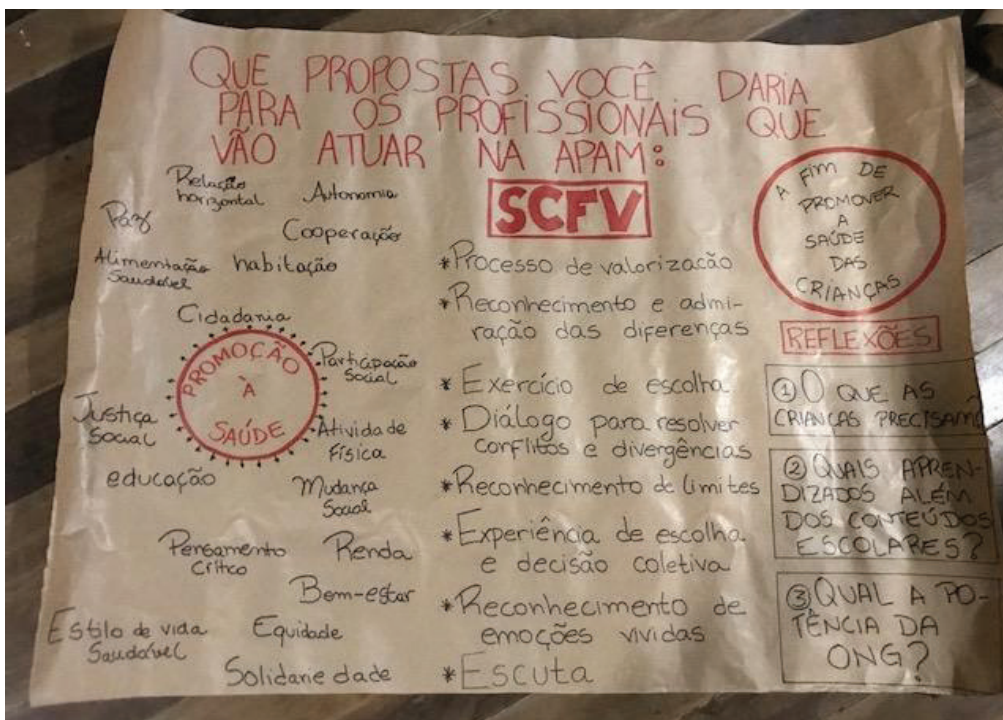 QUE PROPOSTAS VOCÊ DARIA
PARA OS PROFISSIONAIS QUE
VÃO ATUAR NA APAM:
Relação
horizontal
Autonomia
Paz
Cooperação
Alimentação
Saudável
habitação
Cidadania
PROMOÇÃO
À
SAÚDE
Participação
Social
Justiça
Social
Atividade
Física
educação
Mudança
Social
Pensamento
Crítico
Renda
Bem-estar
Estilo de vida
Saudável
Equidade
Solidariedade
SCFV
*Processo de valorização
*Reconhecimento e admi-
ração das diferenças
*Exercício de escolha
*Diálogo para resolver
conflitos e divergências
*Reconhecimento de limites
*Experiência de escolha
e decisão coletiva
*Reconhecimento de
emoções vividas
*Escuta
A FIM DE
PROMOVER
A
SAÚDE
DAS
CRIANÇAS
REFLEXÕES
① O QUE AS
CRIANÇAS PRECISAM?
② QUAIS APREN-
DIZADOS ALÉM
DOS CONTEÚDOS
ESCOLARES?
③ QUAL A PO-
TÊNCIA DA
ONG?